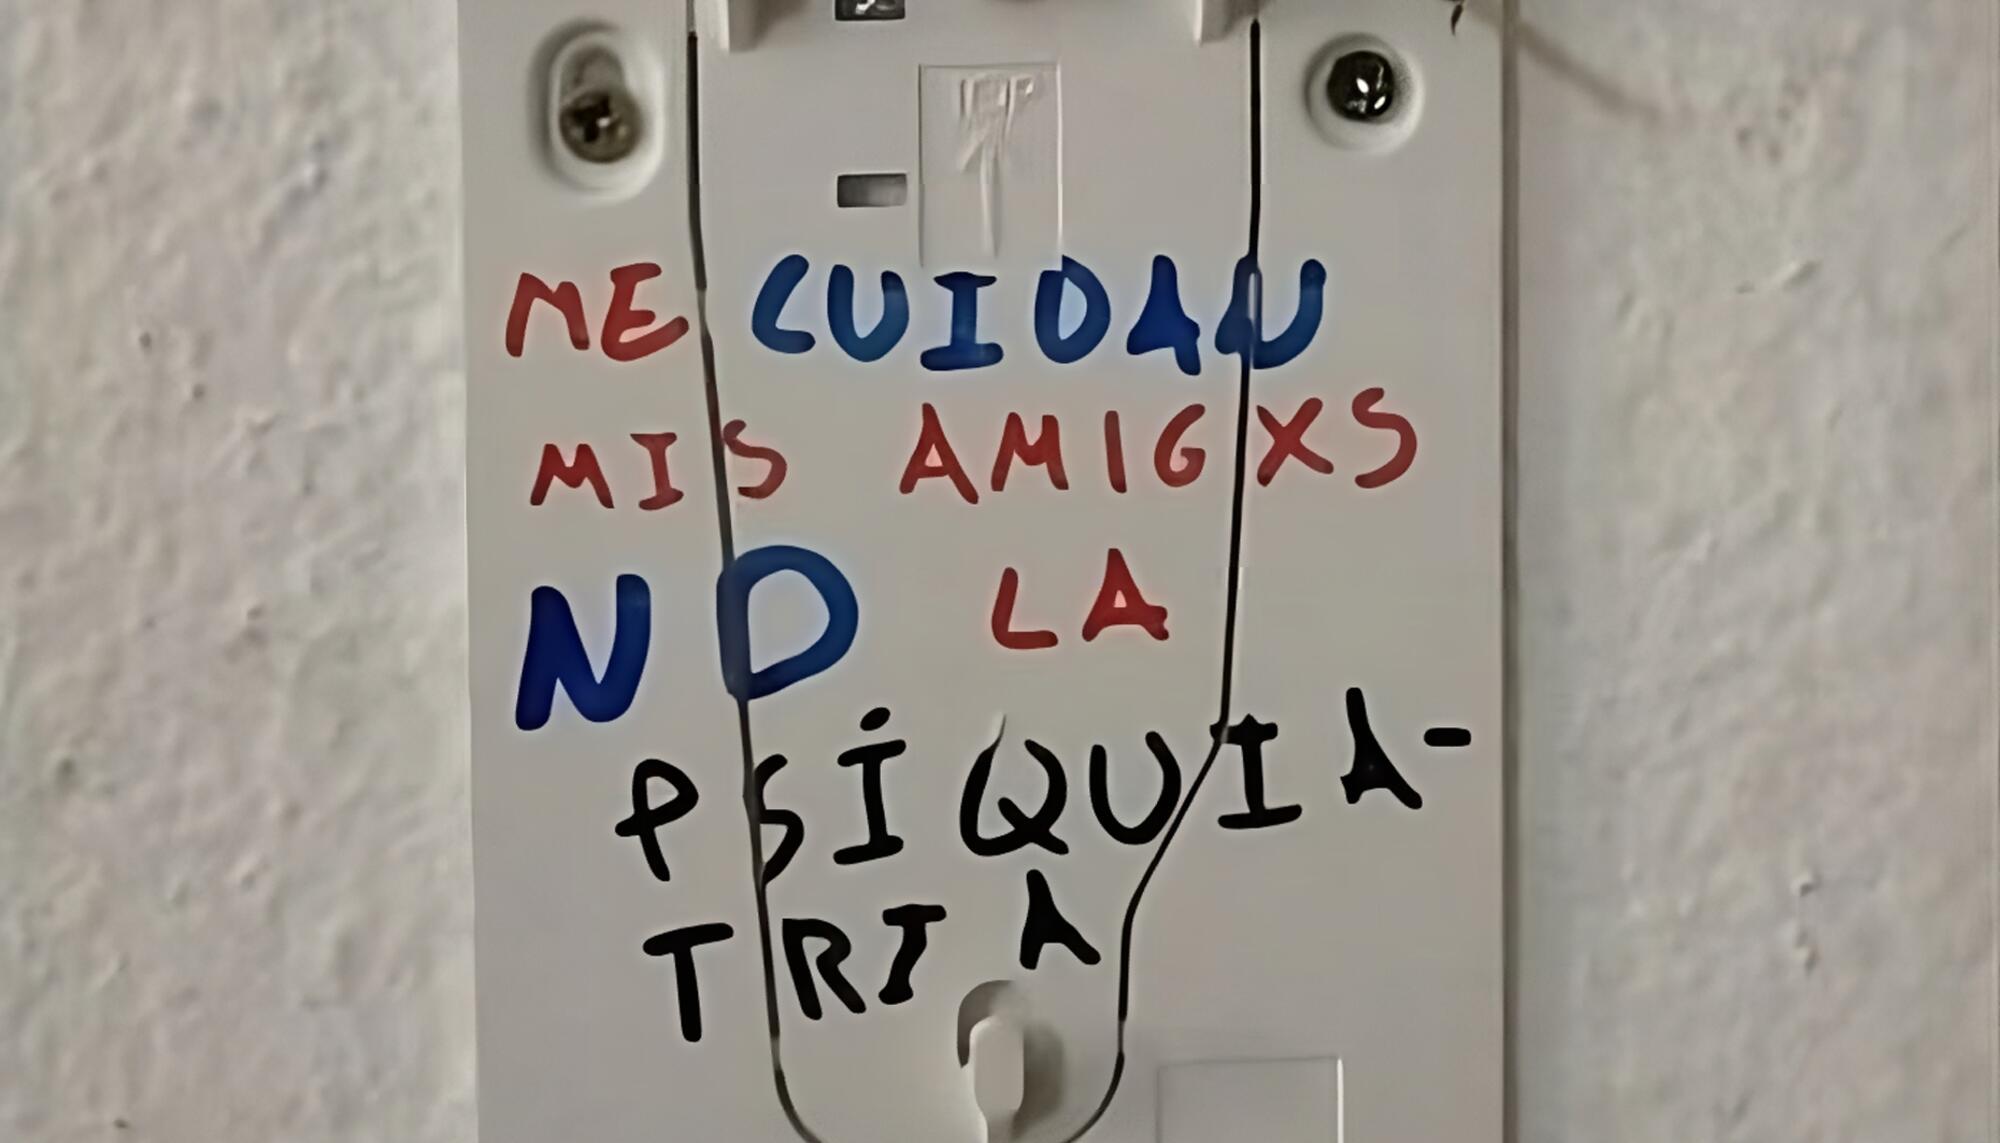 ME CUIDAN
MIS AMIGXS
NO LA
PSIQUIA-
TRIA